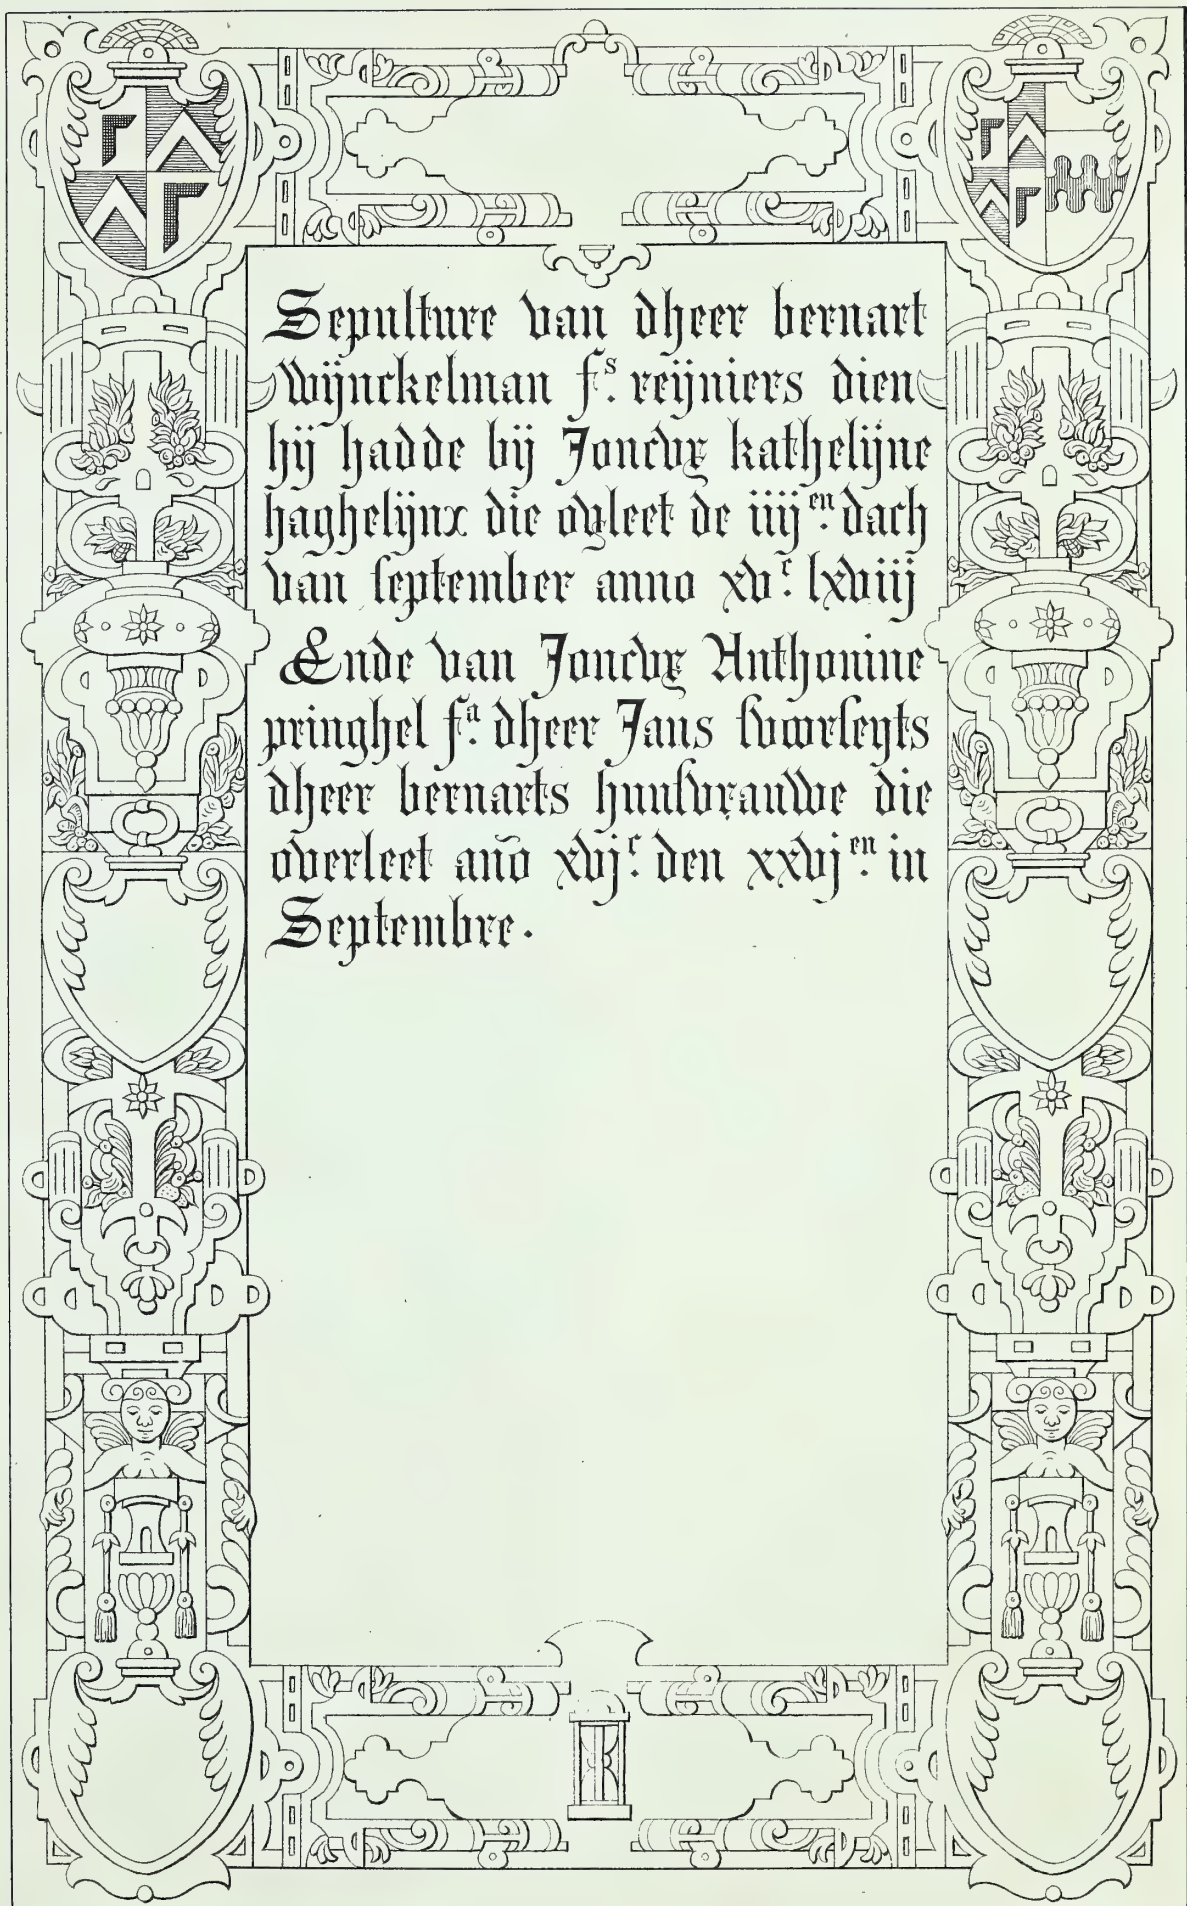 Sepulture van dheer bernart
Wijnckelman fˢ. reijniers dien
hij hadde bij Joncvr kathelijne
haghelijnx die ovleet de iiijᵉⁿ. dach
van september anno xvᶜ. lxviij
Ende van Joncvr Anthonine
pringhel fᵃ. dheer Jans svoorseyts
dheer bernarts huusvrauwe die
overleet año xvjᶜ. den xxvjᵉⁿ. in
Septembre.